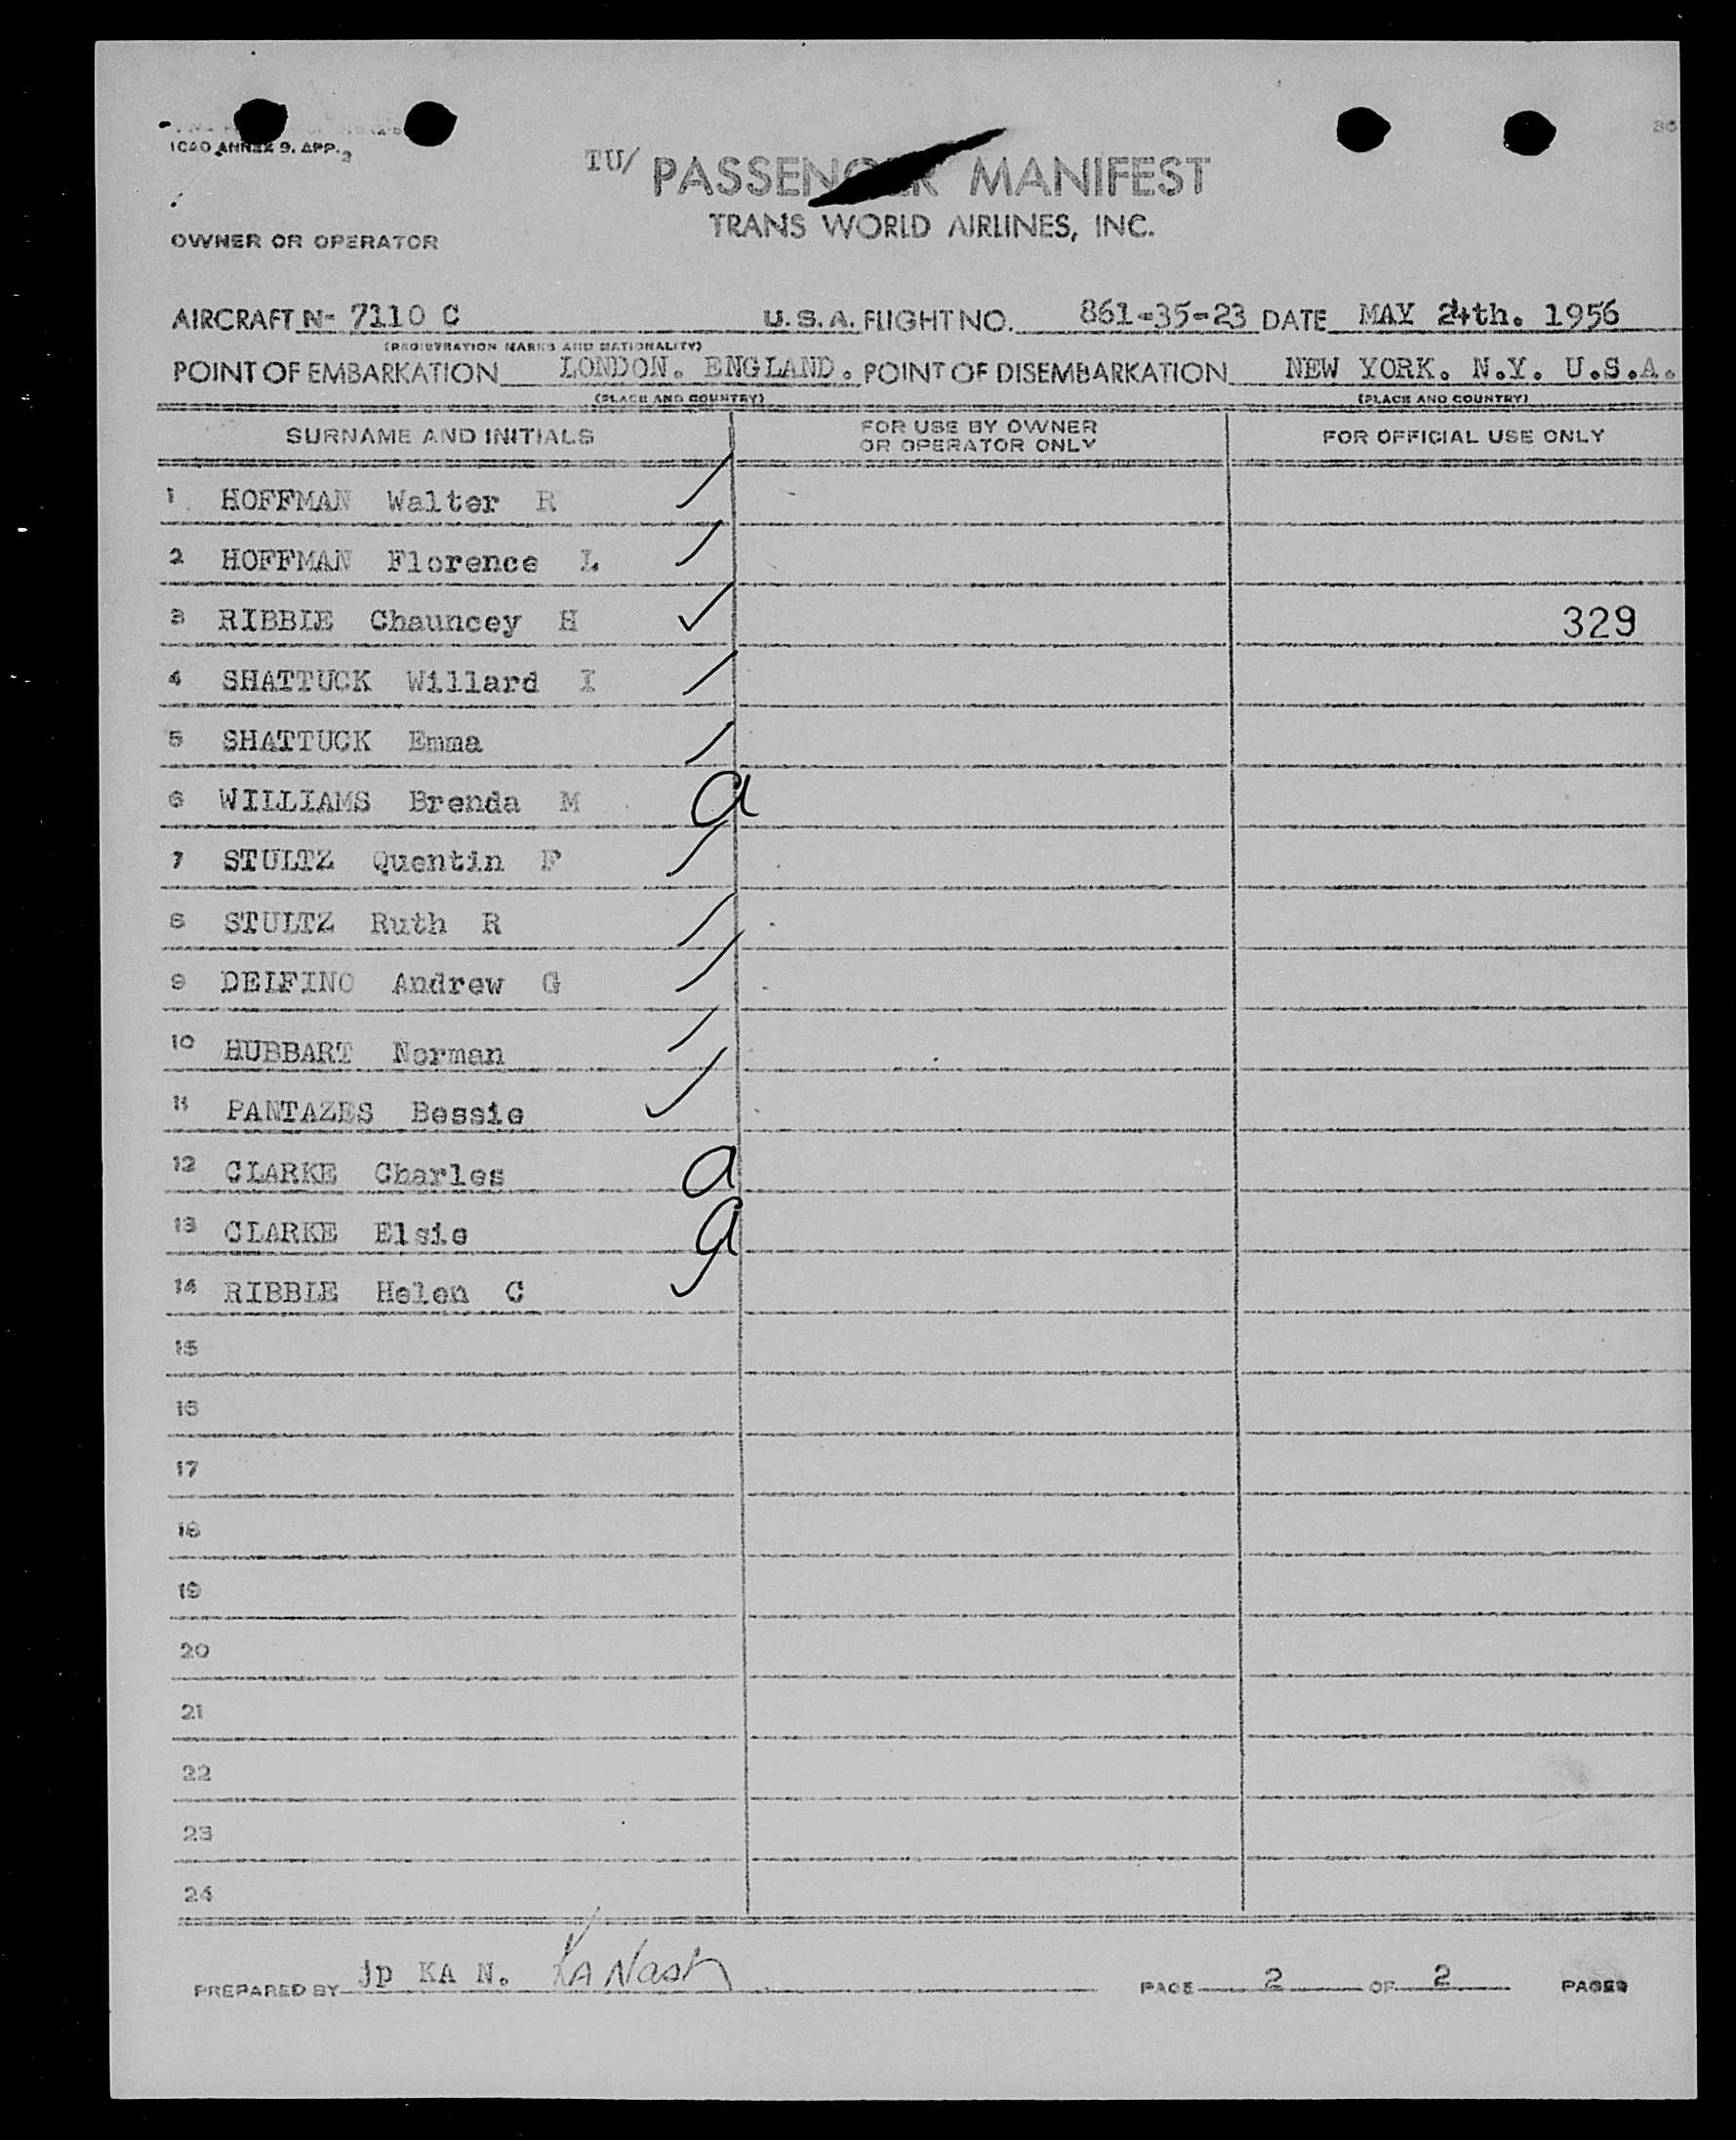 ICAO ANNEX 9. APP. 2
TU/ PASSENGER MANIFEST
TRANS WORLD AIRLINES, INC.
OWNER OR OPERATOR
AIRCRAFT N- 7110 C U.S.A. FLIGHT NO. 861-35-23 DATE MAY 24th. 1956
(REGISTRATION MARKS AND NATIONALITY)
POINT OF EMBARKATION LONDON. ENGLAND. POINT OF DISEMBARKATION NEW YORK. N.Y. U.S.A.
(PLACE AND COUNTRY) (PLACE AND COUNTRY)
SURNAME AND INITIALS FOR USE BY OWNER OR OPERATOR ONLY FOR OFFICIAL USE ONLY
1 HOFFMAN Walter R
2 HOFFMAN Florence L
3 RIBBLE Chauncey H 329
4 SHATTUCK Willard I
5 SHATTUCK Emma
6 WILLIAMS Brenda M a
7 STULTZ Quentin F
8 STULTZ Ruth R
9 DELFINO Andrew G
10 HUBBART Norman
11 PANTAZES Bessie
12 CLARKE Charles a
13 CLARKE Elsie a
14 RIBBLE Helen C
15
16
17
18
19
20
21
22
23
24
PREPARED BY jp KA N. KA Nash PAGE 2 OF 2 PAGES